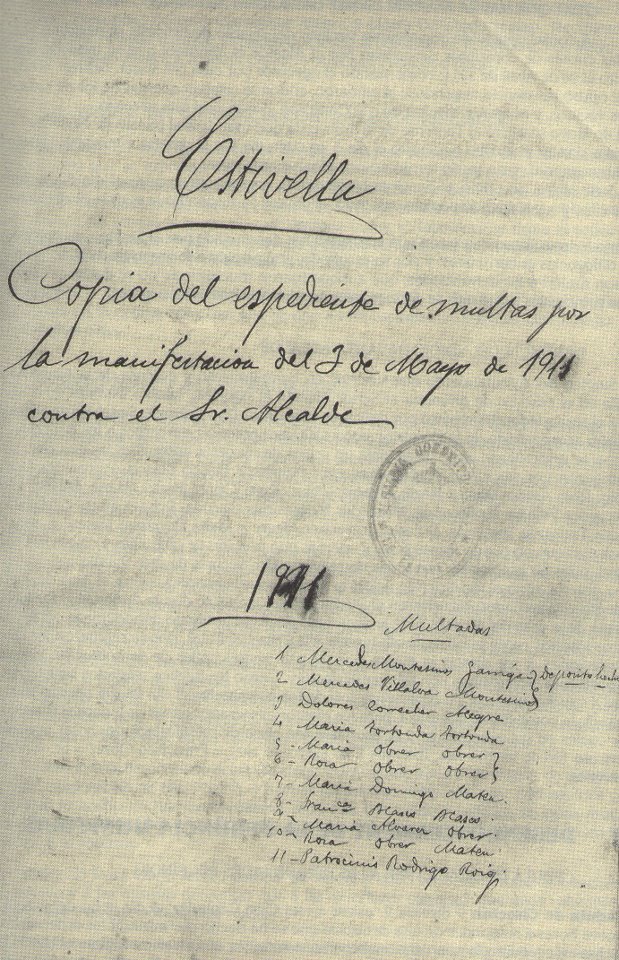 Estivella
Copia del espediente de multas por
la manifestacion del 3 de Mayo de 1911
contra el Sr. Alcalde
1911
Multadas
1 Mercedes Montesinos } Deposito
2 Mercedes Villalva Montesinos }
3 Dolores Correcher Alegre
4 Maria Tortonda Tortonda
5 - Maria Obrer Obrer }
6 - Rosa Obrer Obrer }
7 - Maria Domingo Mateu.
8 - Fran.ca Blasco Blasco.
9 - Maria Alverez Obrer.
10 - Rosa Obrer Mateu
11 - Patrocinio Rodrigo Roig